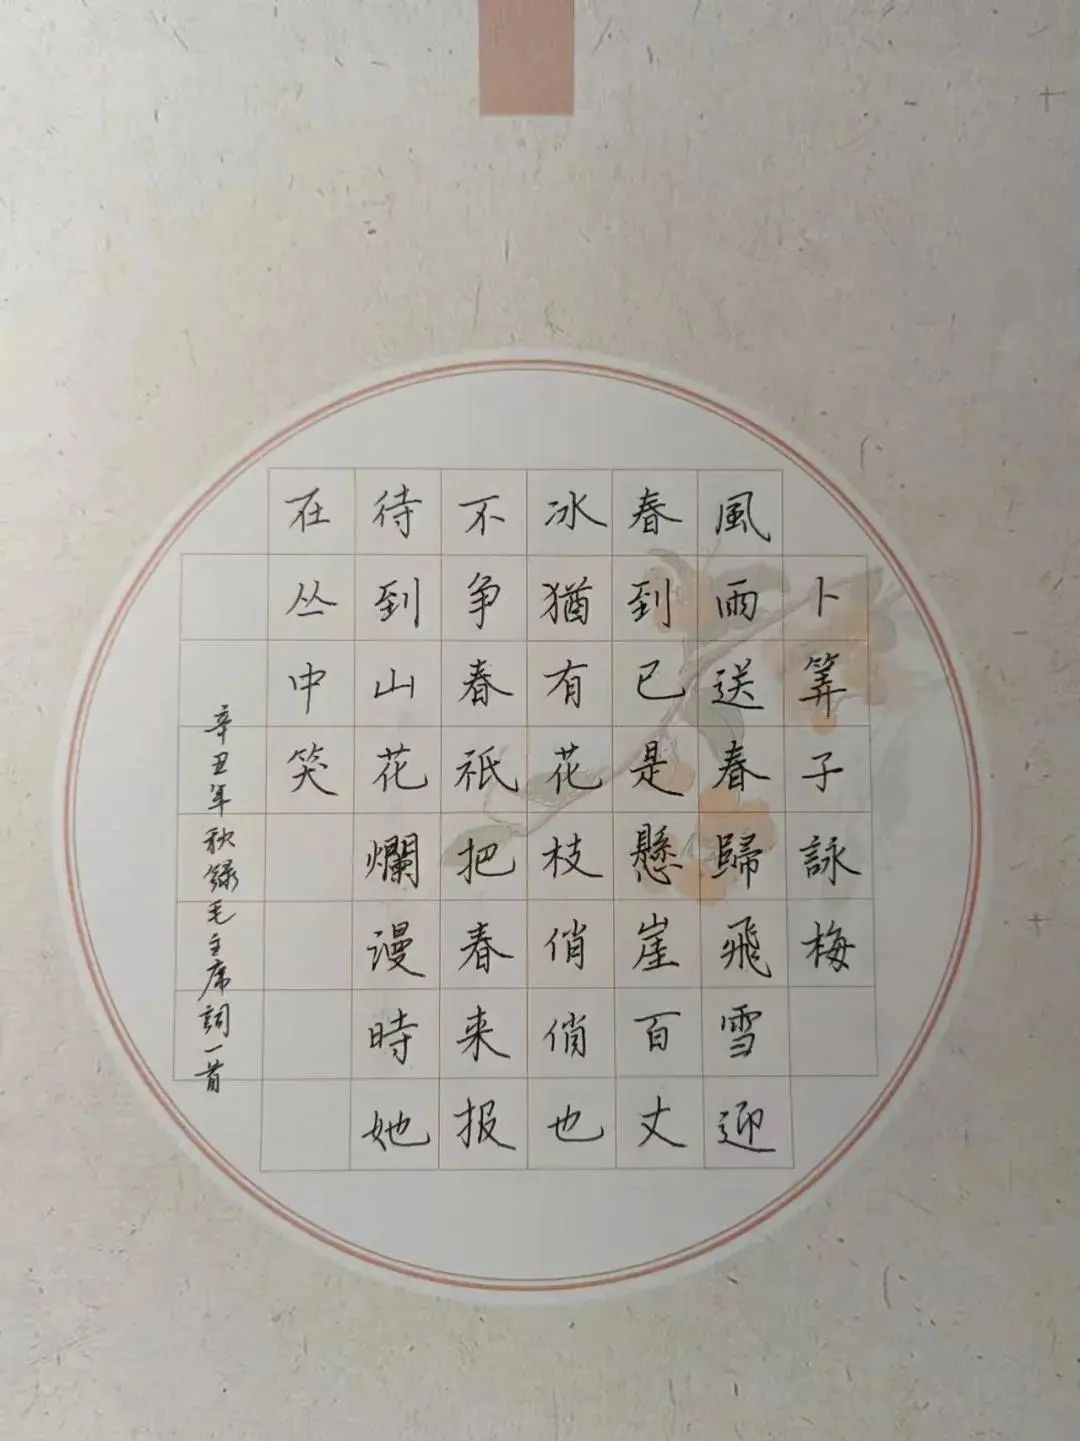 卜筭子詠梅
風雨送春歸飛雪迎
春到已是懸崖百丈
冰猶有花枝俏俏也
不争春祇把春来报
待到山花爛漫時她
在丛中笑
辛丑年秋録毛主席詞一首